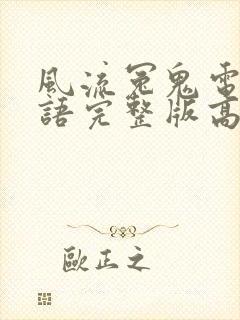 風流冤鬼電
語完整版高
歐正之